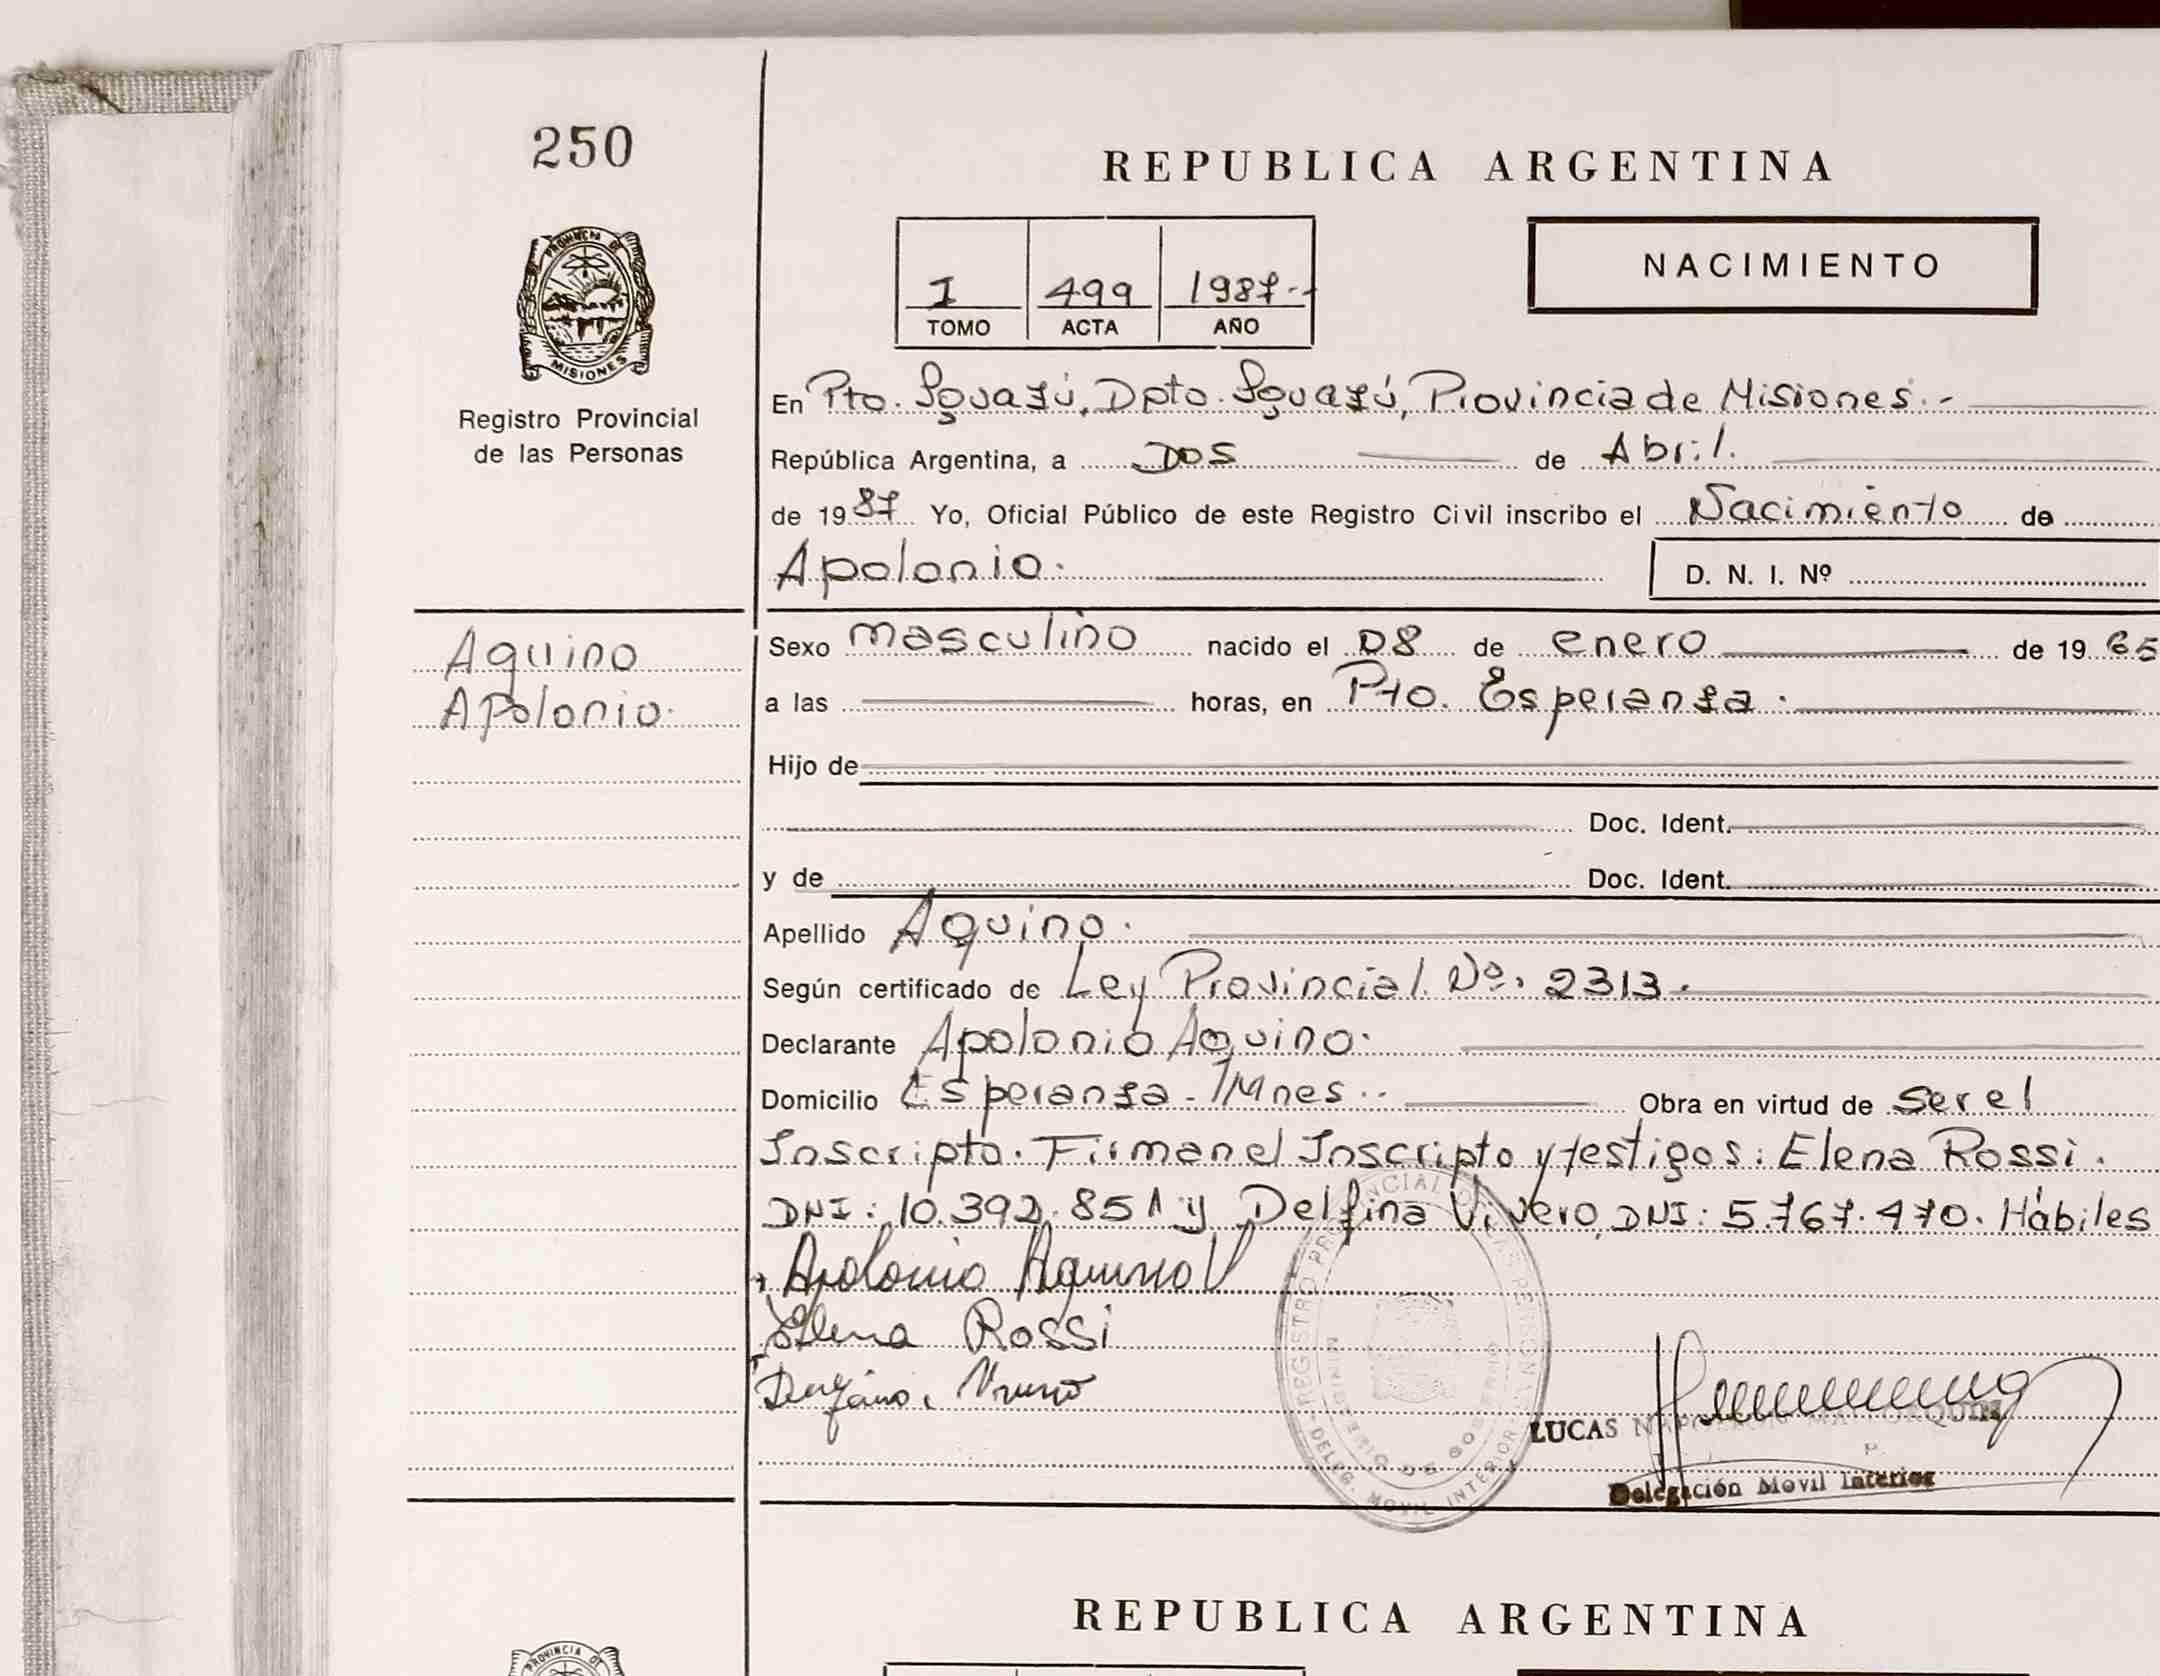 250
REPUBLICA ARGENTINA
PROVINCIA DE MISIONES
Registro Provincial
de las Personas
I 499 1987.-
TOMO ACTA AÑO
NACIMIENTO
En Pto. Iguazú, Dpto. Iguazú, Provincia de Misiones.-
República Argentina, a Dos de Abril.
de 1987 Yo, Oficial Público de este Registro Civil inscribo el Nacimiento de
Apolonio. D. N. I. Nº
Aquino
Apolonio.
Sexo masculino nacido el 08 de enero de 1965
a las horas, en Pto. Esperanza.
Hijo de
Doc. Ident.
y de Doc. Ident.
Apellido Aquino.
Según certificado de Ley Provincial Nº. 2313.
Declarante Apolonio Aquino.
Domicilio Esperanza-Mnes.. Obra en virtud de ser el
Inscripto. Firman el Inscripto y testigos: Elena Rossi.
DNI: 10.392.851 y Delfina Vivero, DNI: 5.767.470. Hábiles
Apolonio Aquino
Elena Rossi
REGISTRO PROVINCIAL DE LAS PERSONAS
MINISTERIO DE GOBIERNO
DELEG. MOVIL INTERIOR
LUCAS
Delegación Movil Interior
REPUBLICA ARGENTINA
PROVINCIA DE